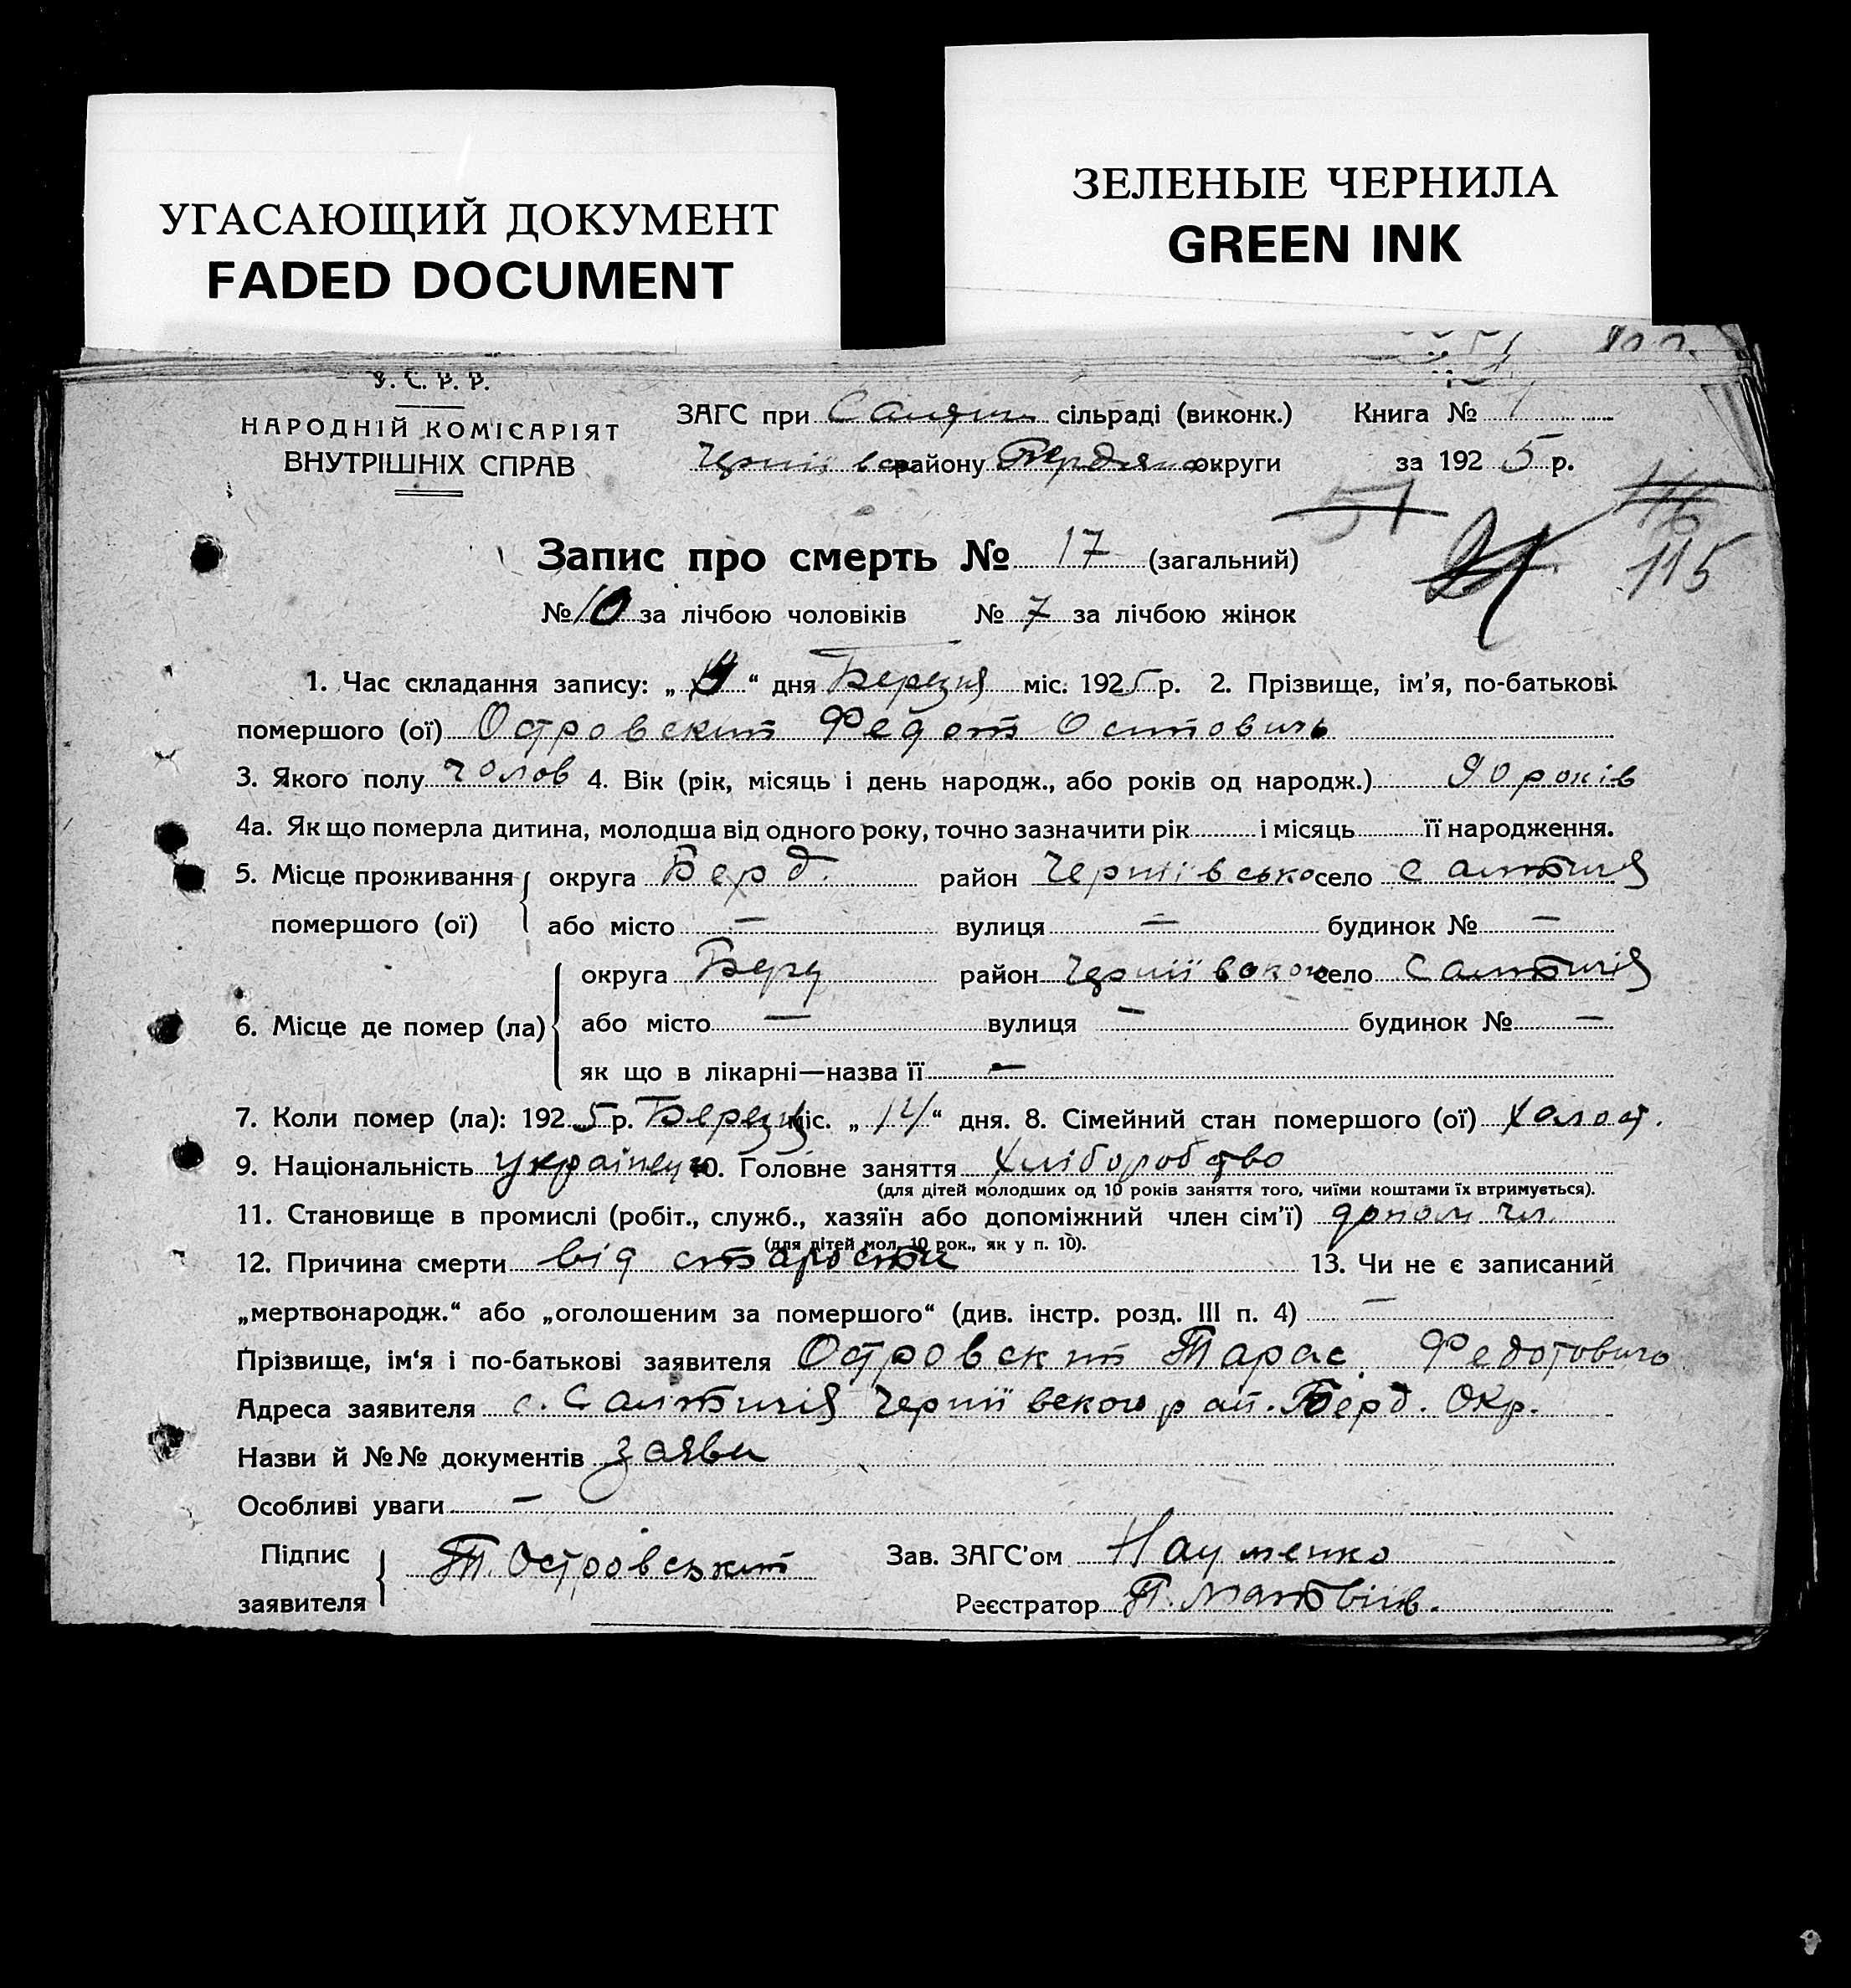 УГАСАЮЩИЙ ДОКУМЕНТ
FADED DOCUMENT
ЗЕЛЕНЫЕ ЧЕРНИЛА
GREEN INK
У. С. Р. Р.
НАРОДНІЙ КОМІСАРІЯТ
ВНУТРІШНІХ СПРАВ
ЗАГС при сільраді (виконк.) Книга №
району округи за 1925 р.
51 116
115
Запис про смерть № 17 (загальний)
№ 10 за лічбою чоловіків № 7 за лічбою жінок
1. Час складання запису: „ “ дня Березня міс. 1925 р. 2. Прізвище, ім’я, по-батькові
померлого (ої) Островский Федот Осипович
3. Якого полу чолов 4. Вік (рік, місяць і день народж., або років од народж.) 90 років
4а. Як що померла дитина, молодша від одного року, точно зазначити рік і місяць її народження.
5. Місце проживання померлого (ої) округа Берд. район село Салтичія
або місто — вулиця — будинок № —
6. Місце де помер (ла) округа Берд район село Салтичія
або місто — вулиця — будинок № —
як що в лікарні—назва її —
7. Коли помер (ла): 1925 р. Березня міс. „14“ дня. 8. Сімейний стан померлого (ої) холост.
9. Національність українец 10. Головне заняття Хліборобство
(для дітей молодших од 10 років заняття того, чиїми коштами їх втримується).
11. Становище в промислі (робіт., служб., хазяїн або допоміжний член сім’ї) допом чл.
(для дітей мол. 10 рок., як у п. 10).
12. Причина смерти від старости 13. Чи не є записаний
„мертвонародж.“ або „оголошеним за померлого“ (див. інстр. розд. III п. 4) —
Прізвище, ім‘я і по-батькові заявителя Островский Тарас Федотович
Адреса заявителя с. Салтичія рай. Берд. Окр.
Назви й №№ документів заяви
Особливі уваги —
Підпис заявителя Т. Островський Зав. ЗАГС’ом Науменко
Реєстратор П. Матвіїв.